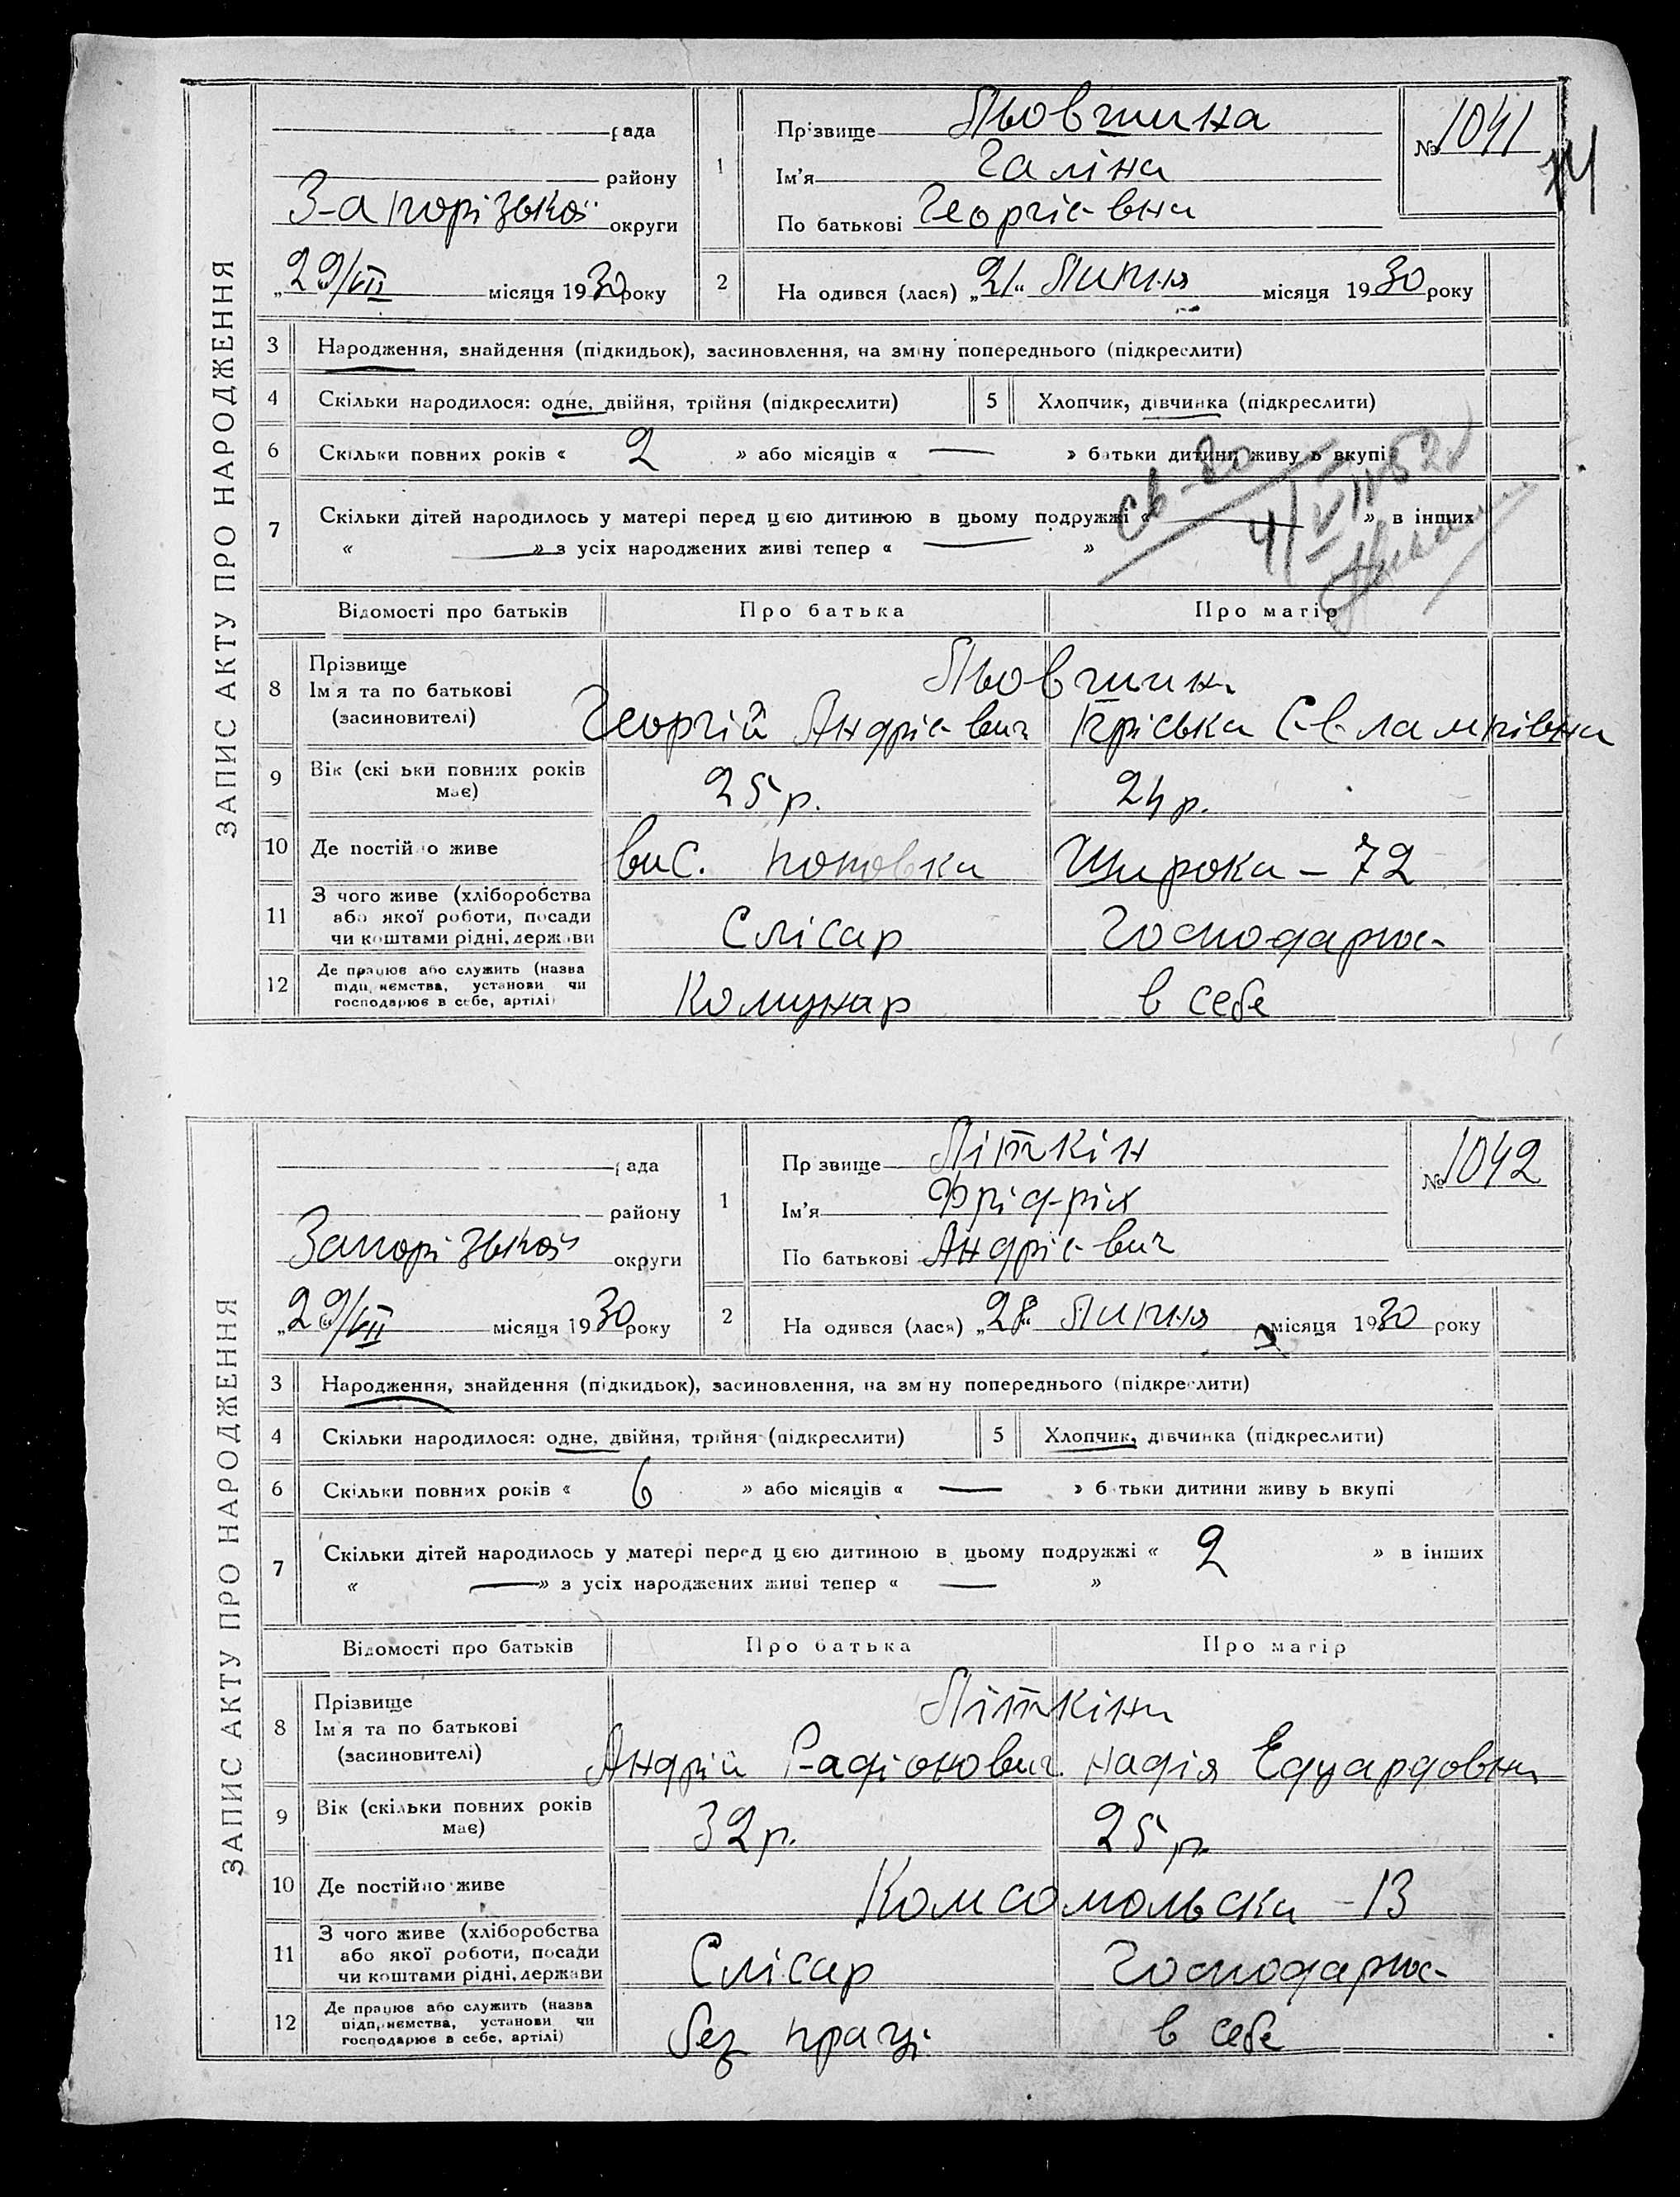 ЗАПИС АКТУ ПРО НАРОДЖЕННЯ
рада
району
З-апорізької округи
„29/VII місяця 1930 року
1
Прізвище Льовшина
Ім'я Галіна
По батькові Георгієвна
№ 1041
2
На одився (лася) „21“ Липня місяця 1930 року
3 Народження, знайдення (підкидьок), засиновлення, на зміну попереднього (підкреслити)
4 Скільки народилося: одне, двійня, трійня (підкреслити)
5 Хлопчик, дівчинка (підкреслити)
6 Скільки повних років « 2 » або місяців « — » батьки дитини живу ь вкупі
7 Скільки дітей народилось у матері перед цією дитиною в цьому подружжі « — » в інших
« — » з усіх народжених живі тепер « — »
Відомості про батьків Про батька Про матір
8 Прізвище
Ім'я та по батькові
(засиновителі)
Льовшин
Георгій Андрієвич
9 Вік (скі ьки повних років має) 25 р. 24 р.
10 Де постійно живе вис. Поповка Широка – 72
11 З чого живе (хліборобства або якої роботи, посади чи коштами рідні, держави Слісар Господарює
12 Де працює або служить (назва підприємства, установи чи господарює в себе, артілі) Комунар в себе
ЗАПИС АКТУ ПРО НАРОДЖЕННЯ
рада
району
Запорізької округи
„29/VII місяця 1930 року
1
Пр звище Літкін
Ім'я Фрідріх
По батькові Андрієвич
№ 1042
2
На одився (лася) „28“ Липня місяця 1930 року
3 Народження, знайдення (підкидьок), засиновлення, на зм ну попереднього (підкреслити)
4 Скільки народилося: одне, двійня, трійня (підкреслити)
5 Хлопчик, дівчинка (підкреслити)
6 Скільки повних років « 6 » або місяців « — » б тьки дитини живу ь вкупі
7 Скільки дітей народилось у матері перед цією дитиною в цьому подружжі « 2 » в інших
« — » з усіх народжених живі тепер « — »
Відомості про батьків Про батька Про матір
8 Прізвище
Ім'я та по батькові
(засиновителі)
Літкіни
Андрій Радіонович Надія Едуардовна
9 Вік (скільки повних років має) 32 р. 25 р.
10 Де постійно живе Комсомольска – 13
11 З чого живе (хліборобства або якої роботи, посади чи коштами рідні, держави Слісар Господарює
12 Де працює або служить (назва підприємства, установи чи господарює в себе, артілі) без праці в себе